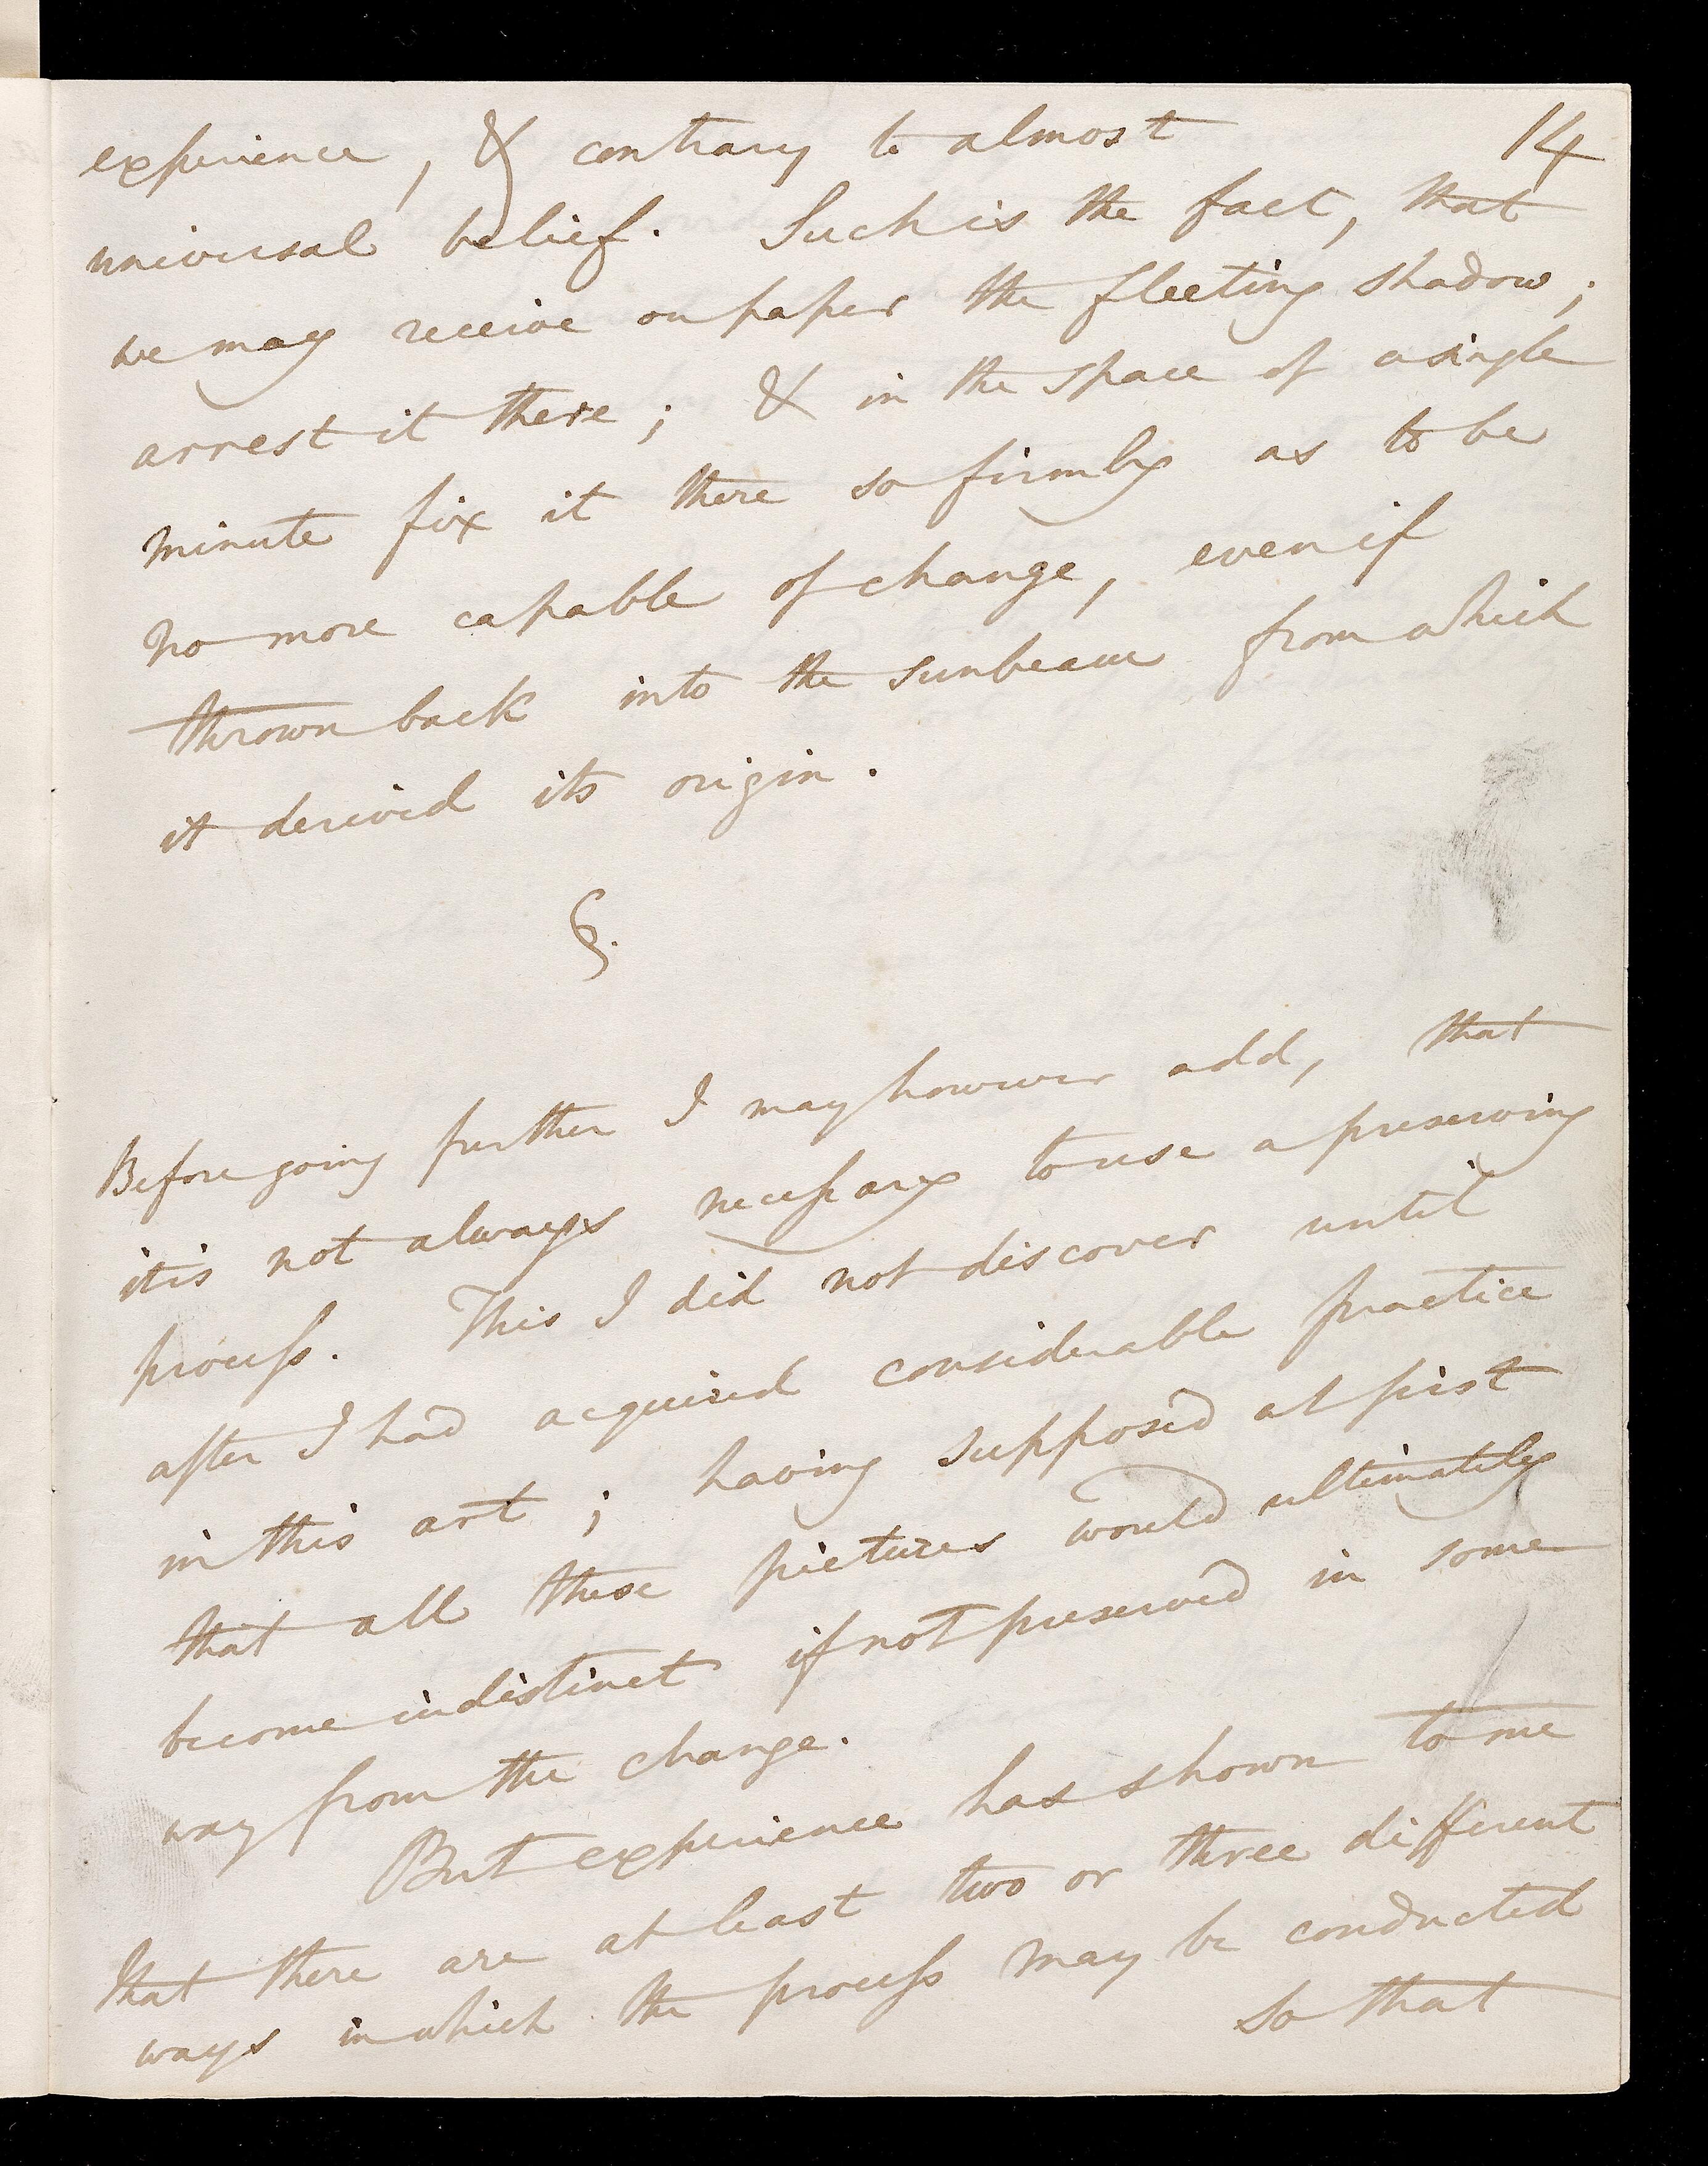 14
experience, & contrary to almost
universal belief. Such is the fact, that
we may receive on paper the fleeting shadow;
arrest it there; & in the space of a single
minute fix it there so firmly as to be
no more capable of change, even if
thrown back into the sunbeam from which
it derived its origin.
§.
Before going further I may however add, that
it is not always necessary to use a preserving
process. This I did not discover until
after I had acquired considerable practice
in this art; having supposed at first
that all these pictures would ultimately
become indistinct if not preserved in some
way from the change.
But experience has shown to me
that there are at least two or three different
ways in which the process may be conducted
so that